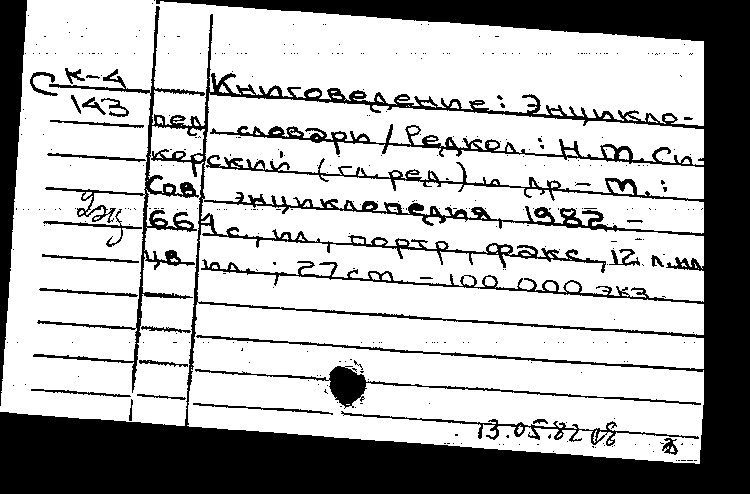 С К-4
143
Книговедение: Энцикло-
пед. словарь / Редкол.: Н. М. Си-
корский (гл. ред.) и др. – М.:
Сов. энциклопедия, 1982. –
2 экз
664 с., ил., портр., факс., 12 л. ил.
цв ил.; 27 cm. – 100 000 экз.
13.05.82